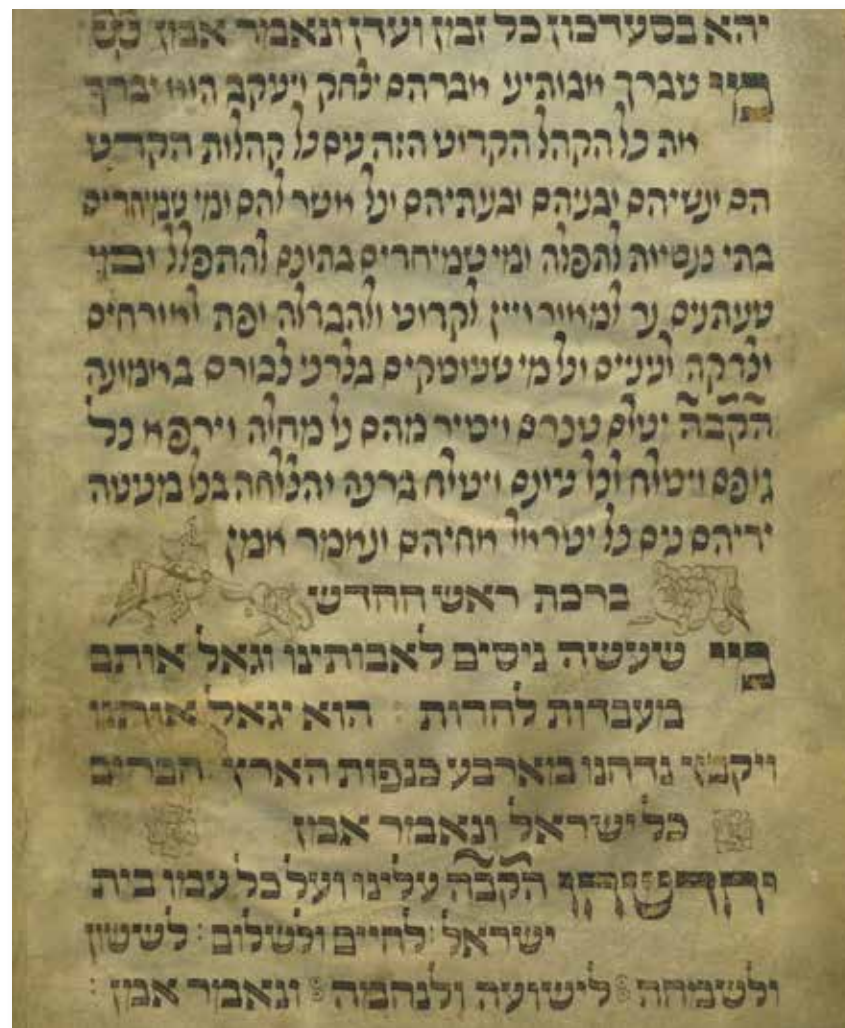 יהא בסעדכון כל זמן ועדן ונאמר אמן
מי שברך אבותינו אברהם יצחק ויעקב הוא יברך
את כל הקהל הקדוש הזה עם כל קהלות הקדש
הם ונשיהם ובניהם ובנתיהם וכל אשר להם ומי שמיחדים
בתי כנסיות לתפלה ומי שבאים בתוכם להתפלל ומי
שנותנים נר למאור ויין לקדוש ולהבדלה ופת לאורחים
וצדקה לעניים וכל מי שעוסקים בצרכי צבור באמונה
הקבה ישלם שכרם ויסיר מהם כל מחלה וירפא כל
גופם ויסלח לכל עונם וישלח ברכה והצלחה בכל מעשה
ידיהם עם כל ישראל אחיהם ונאמר אמן
ברכת ראש החדש
מי שעשה ניסים לאבותינו וגאל אותם
מעבדות לחרות : הוא יגאל אותנו
ויקבץ נדחנו מארבע כנפות הארץ חברים
כל ישראל ונאמר אמן
יחדשהו הקבה עלינו ועל כל עמו בית
ישראל : לחיים ולשלום : לששון
ולשמחה : לישועה ולנחמה : ונאמר אמן :